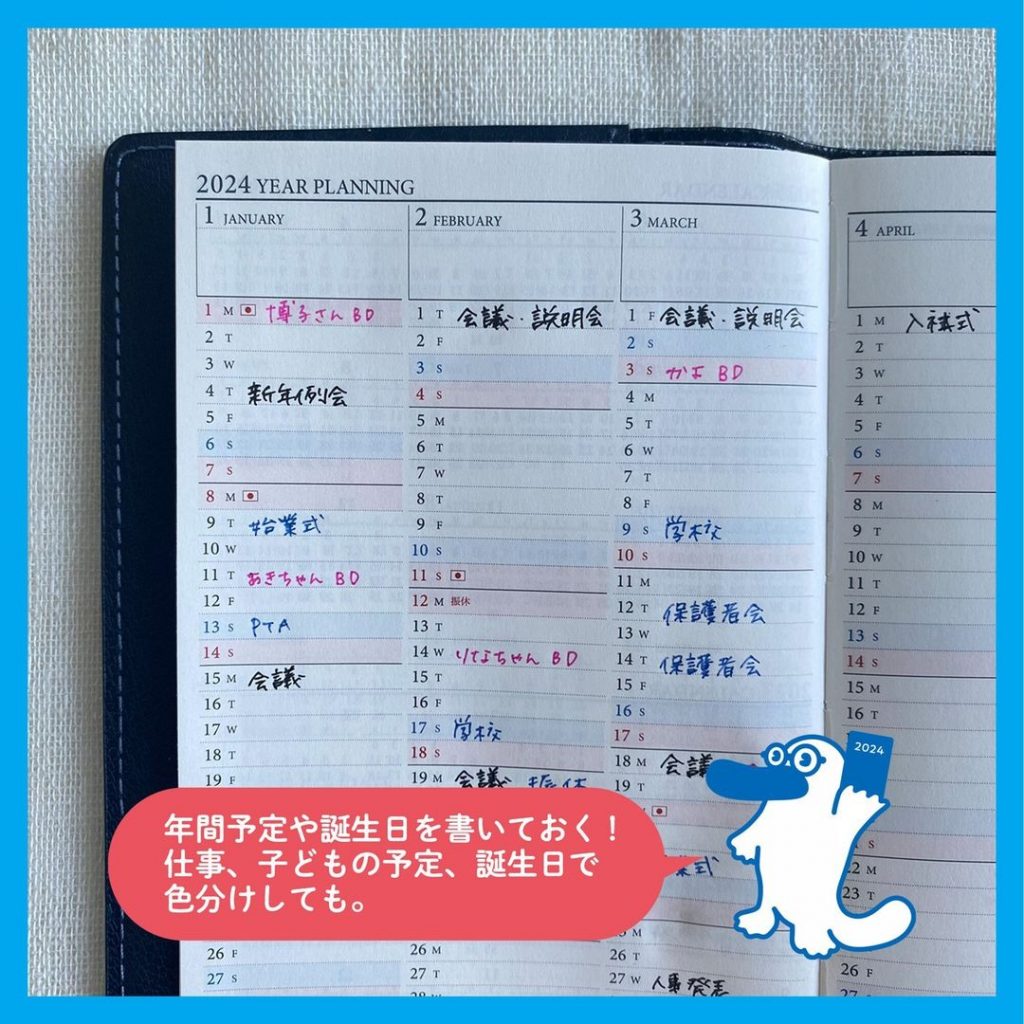 2024 YEAR PLANNING
1 JANUARY
1 M 博子さん BD
2 T
3 W
4 T 新年例会
5 F
6 S
7 S
8 M
9 T 始業式
10 W
11 T あきちゃん BD
12 F
13 S PTA
14 S
15 M 会議
16 T
17 W
18 T
19 F
26 F
27 S
2 FEBRUARY
1 T 会議・説明会
2 F
3 S
4 S
5 M
6 T
7 W
8 T
9 F
10 S
11 S
12 M 振休
13 T
14 W りなちゃん BD
15 T
16 F
17 S 学校
18 S
19 M 会議 振休
26 M
27 T
28 W
3 MARCH
1 F 会議・説明会
2 S
3 S かよ BD
4 M
5 T
6 W
7 T
8 F
9 S 学校
10 S
11 M
12 T 保護者会
13 W
14 T 保護者会
15 F
16 S
17 S
18 M 会議
19 T
業式
25 M
26 T
27 W 人事発表
4 APRIL
1 M 入社式
2 T
3 W
4 T
5 F
6 S
7 S
8 M
9 T
10 W
11 T
12 F
13 S
14 S
15 M
16 T
22 M
23 T
26 F
27 S
2024
年間予定や誕生日を書いておく！
仕事、子どもの予定、誕生日で
色分けしても。